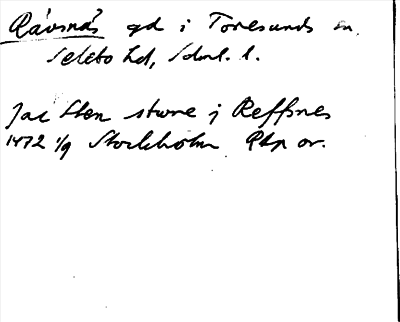 Rävsnäs gd i Toresunds sn,
Selebo hd, Sdml. l.
Jac Sten sture j Reffsnes
1472 1/9 Stockholm RAp or.